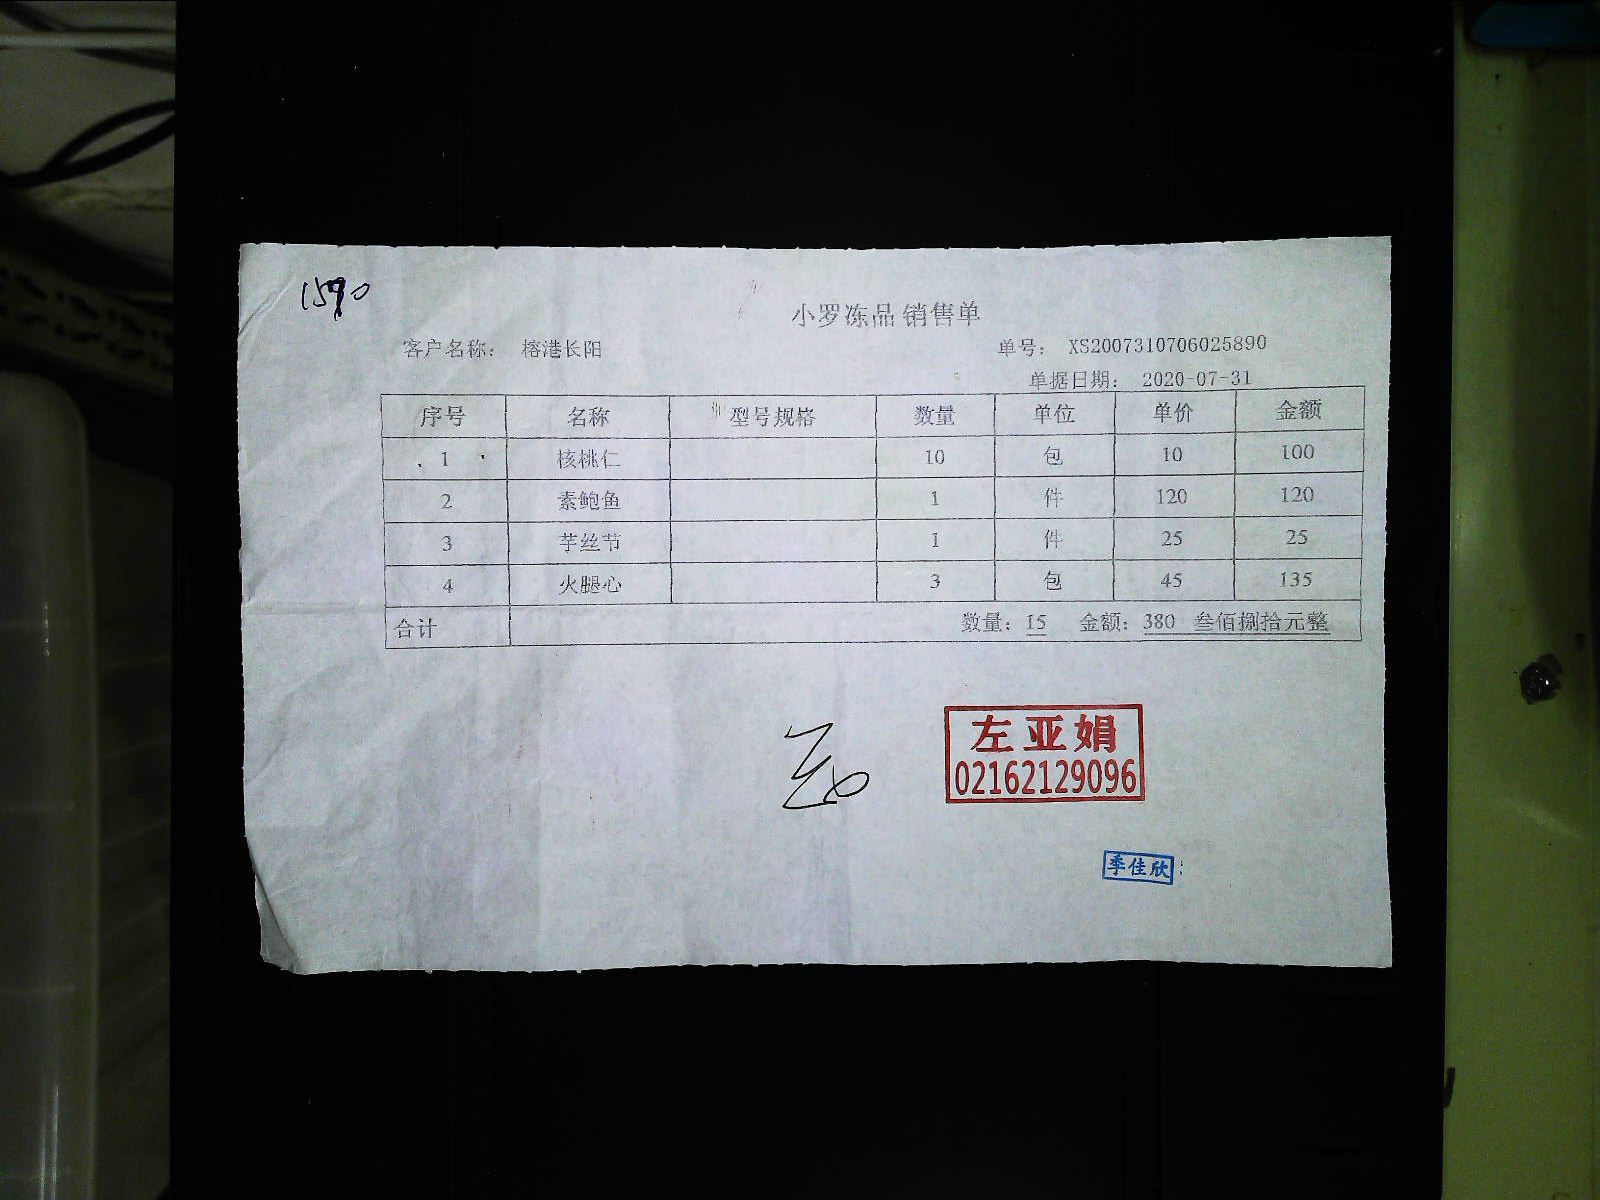 1590
小罗冻品 销售单
客户名称： 榕港长阳 单号： XS2007310706025890
单据日期： 2020-07-31
序号 名称 型号规格 数量 单位 单价 金额
1 核桃仁 10 包 10 100
2 素鲍鱼 1 件 120 120
3 芋丝节 1 件 25 25
4 火腿心 3 包 45 135
合计 数量：15 金额：380 叁佰捌拾元整
左亚娟
02162129096
季佳欣